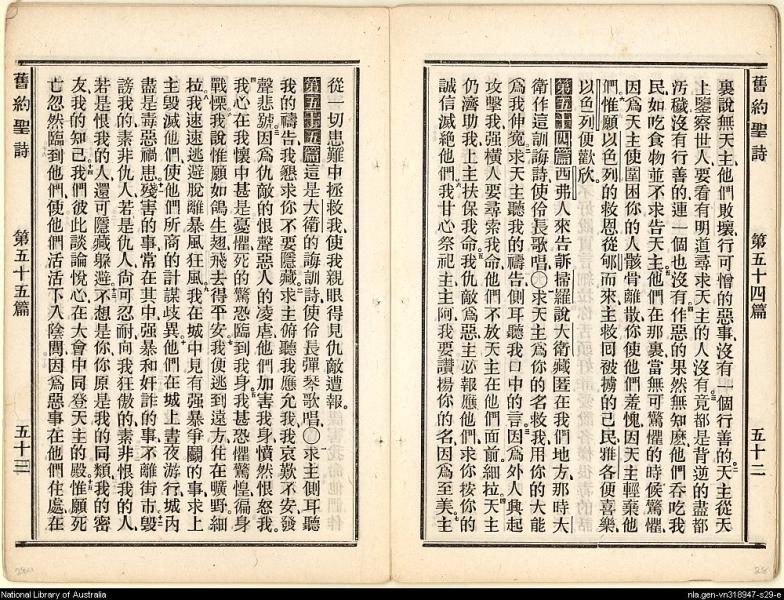 舊約聖詩 第五十四篇 五十二
裏說無天主他們敗壞行可憎的惡事沒有一個行善的天主從天
上鑒察世人要看有明道尋求天主的人沒有竟都是背逆的盡都
汚穢沒有行善的連一個也沒有作惡的果然無知麽他們吞吃我
民如吃食物並不求告天主他們在那裏當無可驚懼的時候驚懼
因爲天主使圍困你的人骸骨離散你使他們羞愧因天主輕棄他
們惟願以色列的救恩從郇而來主救回被擄的己民雅各便喜樂
以色列便歡欣
第五十四篇西弗人來告訴掃羅說大衛藏匿在我們地方那時大
衛作這訓誨詩使伶長歌唱〇求天主爲你的名救我用你的大能
爲我伸寃求天主聽我的禱告側耳聽我口中的言因爲外人興起
攻擊我强橫人要尋索我命他們不放天主在他們面前細拉天主
仍濟助我上主扶保我命我仇敵爲惡主必報應他們求你按你的
誠信滅絕他們我甘心祭祀主主阿我要讚揚你的名因爲至美主
從一切患難中拯救我使我親眼得見仇敵遭報
第五十五篇這是大衛的誨訓詩使伶長彈琴歌唱〇求主側耳聽
我的禱告我懇求你不要隱藏求主俯聽我應允我我哀歎不安發
聲悲號因爲仇敵的恨聲惡人的凌虐他們加害我身憤然恨怒我
我心在我懷中甚是憂懼死的驚恐臨到我身我甚恐懼驚惶徧身
戰慄我說惟願如鴿生翅飛去得平安我便逃到遠方住在曠野細
拉我速速逃避脫離暴風狂風我在城中見有强暴爭鬭的事求上
主毀滅他們使他們所商的計謀歧異他們在城上晝夜游行城內
盡是毒惡禍患殘害的事常在其中强暴和奸詐的事不離街市毀
謗我的素非仇人若是仇人尙可忍耐向我狂傲的素非恨我的人
若是恨我的人還可隱藏躲避不想是你你原是我的同類我的密
友我的知己我們彼此談論悅心在大會中同登天主的殿惟願死
亡忽然臨到他們使他們活活下入陰間因爲惡事在他們住處在
舊約聖詩 第五十五篇 五十三
National Library of Australia
nla.gen-vn318947-s29-e